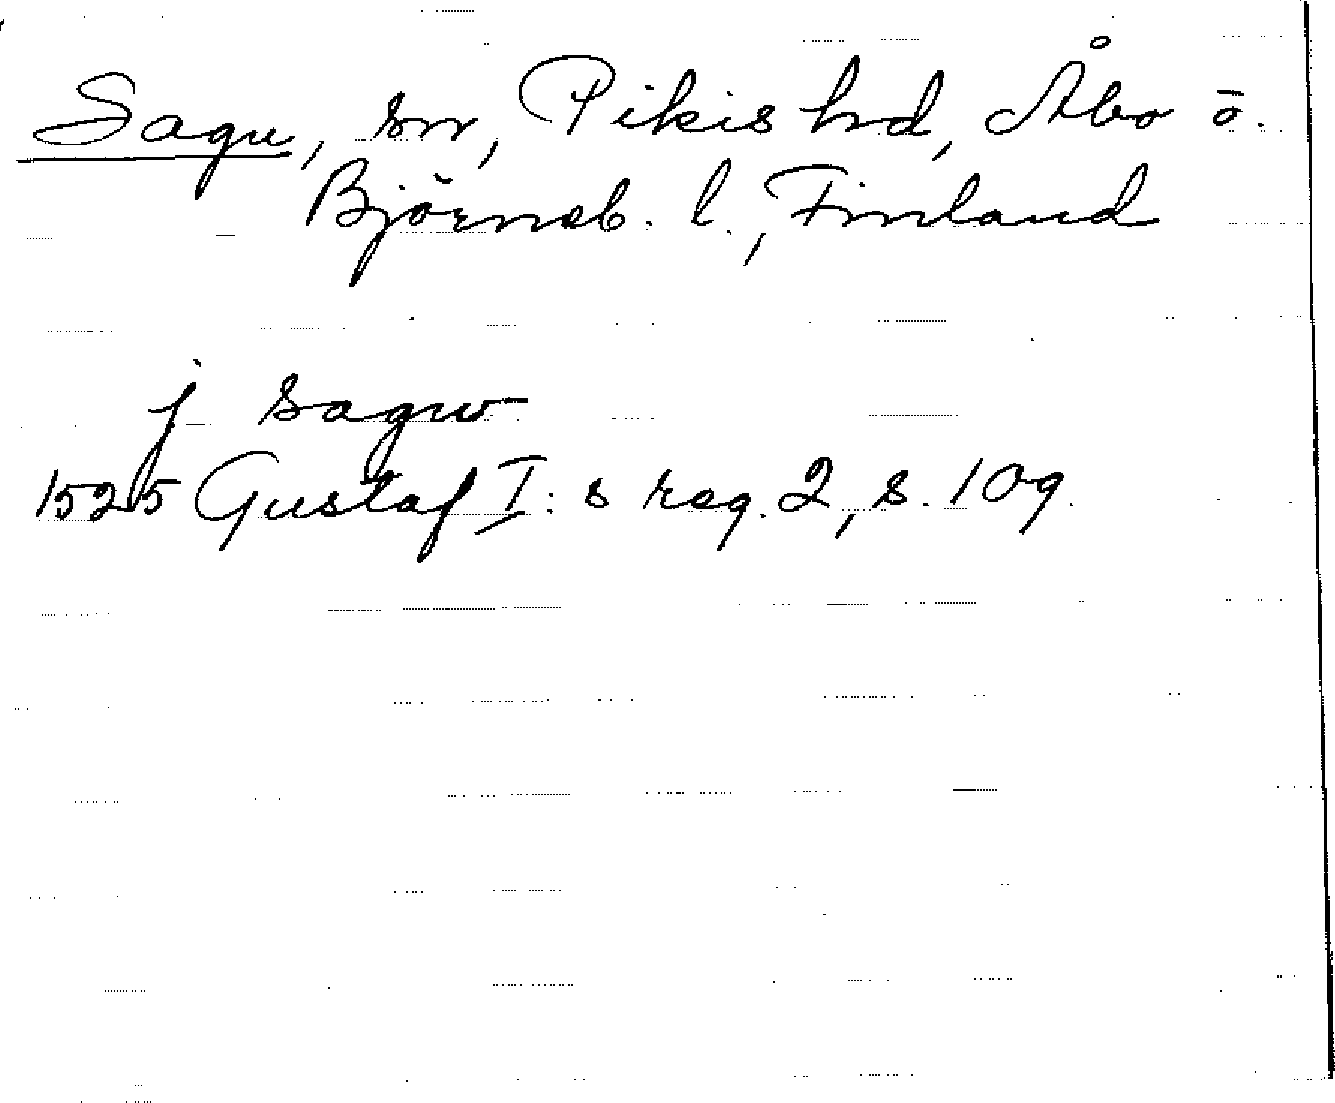 Sagu, sn, Pikis hd, Åbo o.
Björneb. l., Finland
j sagw
1525 Gustaf I:s reg. 2, s. 109.